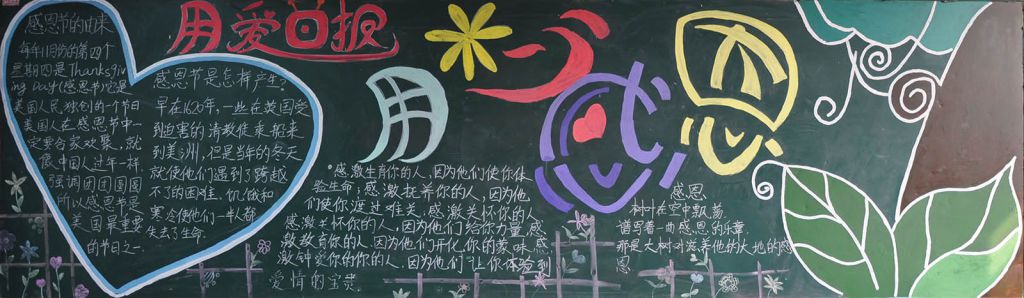 感恩节的由来
每年11月份的第四个
星期四是Thanksgivi
ng Day(感恩节)它是
美国人民独创的一个节日
美国人在感恩节中一
定要合家欢聚，就
像中国人过年一样
强调团团圆圆
所以感恩节是
美国最重要
的节日之一
感恩节是怎样产生?
早在1620年，一些在英国受
到迫害的清教徒乘船来
到美洲，但是当年的冬天
就使他们遇到了跨越
不了的困难，饥饿和
寒冷使他们一半人都
失去了生命
用爱日报
用心感恩
*感激生育你的人，因为他们使你体
验生命；感激抚养你的人，因为他
们使你渡过难关，感激关怀你的人
感激关怀你的人，因为他们给你力量，感
激教育你的人，因为他们开化你的蒙昧，感
激钟爱你的你的人，因为他们让你体验到
爱情的宝贵。
感恩
树叶在空中飘荡
谱写着一曲感恩的乐章
那是大树对滋养他的大地的感
恩